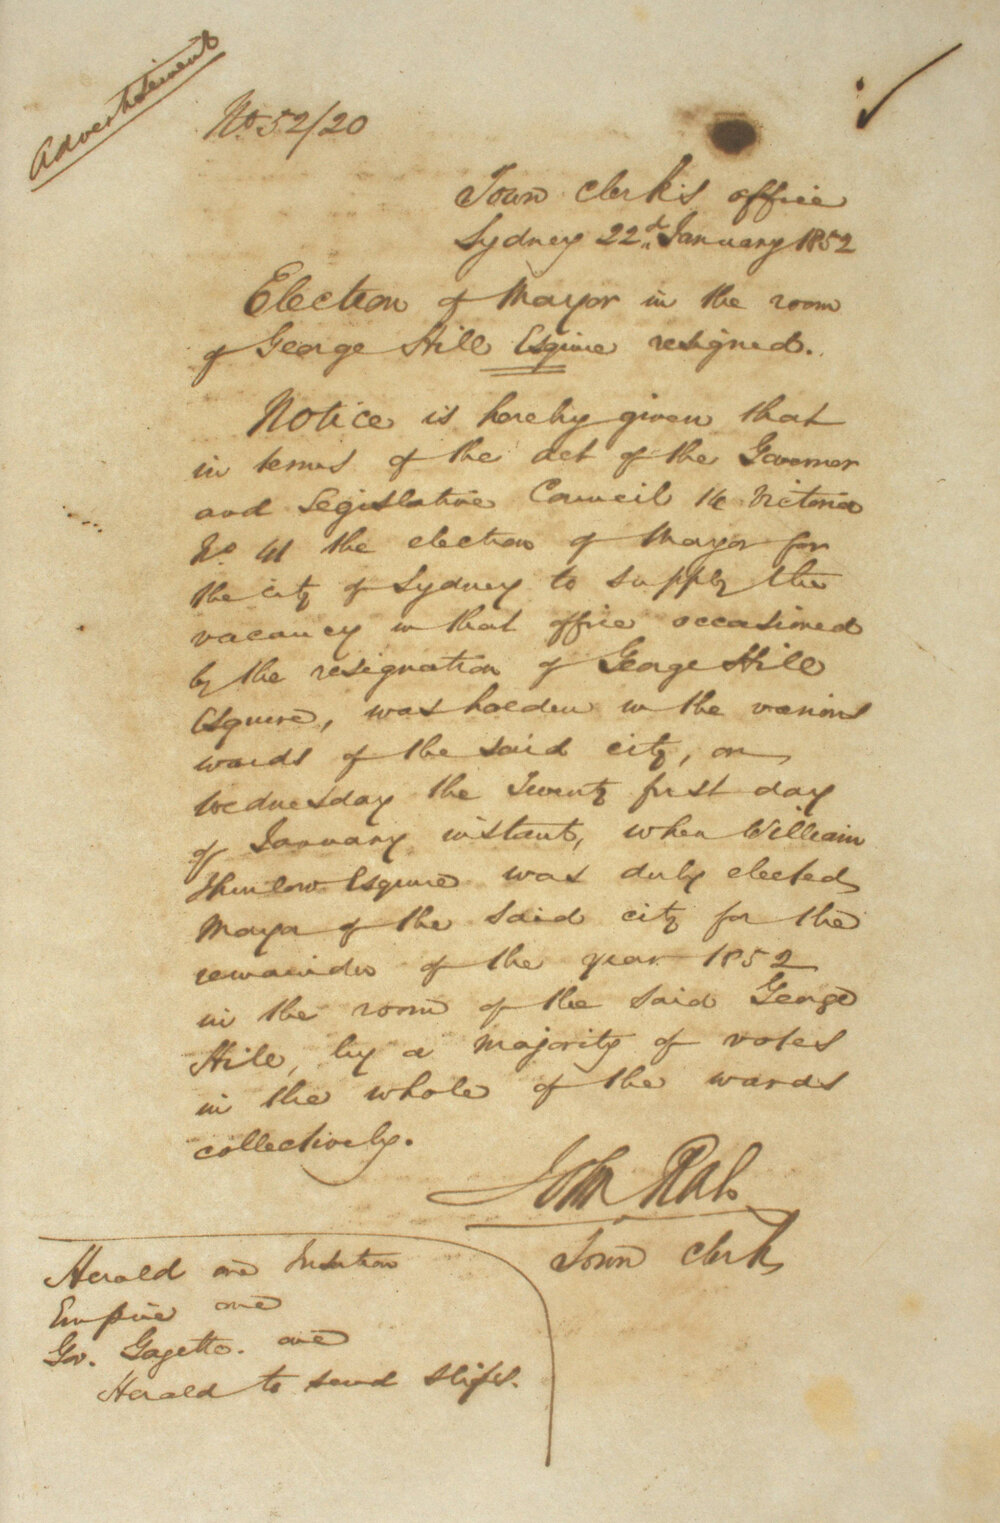 Advertisement
No 52/20
Town Clerk's office
Sydney 22d January 1852
Election of Mayor in the room
of George Hill Esquire resigned.
Notice is hereby given that
in terms of the Act of the Governor
and Legislative Council 14 Victoria
No 41 the election of Mayor for
the city of Sydney to supply the
vacancy in that office occasioned
by the resignation of George Hill
Esquire, was holden in the various
wards of the said city, on
Wednesday the Twenty first day
of January instant, when William
Thurlow Esquire was duly elected
Mayor of the said city for the
remainder of the year 1852
in the room of the said George
Hill, by a majority of votes
in the whole of the wards
collectively.
John Rae
Town Clerk
Herald one Insertion
Empire one
Gov. Gazette. one
Herald to send slips.